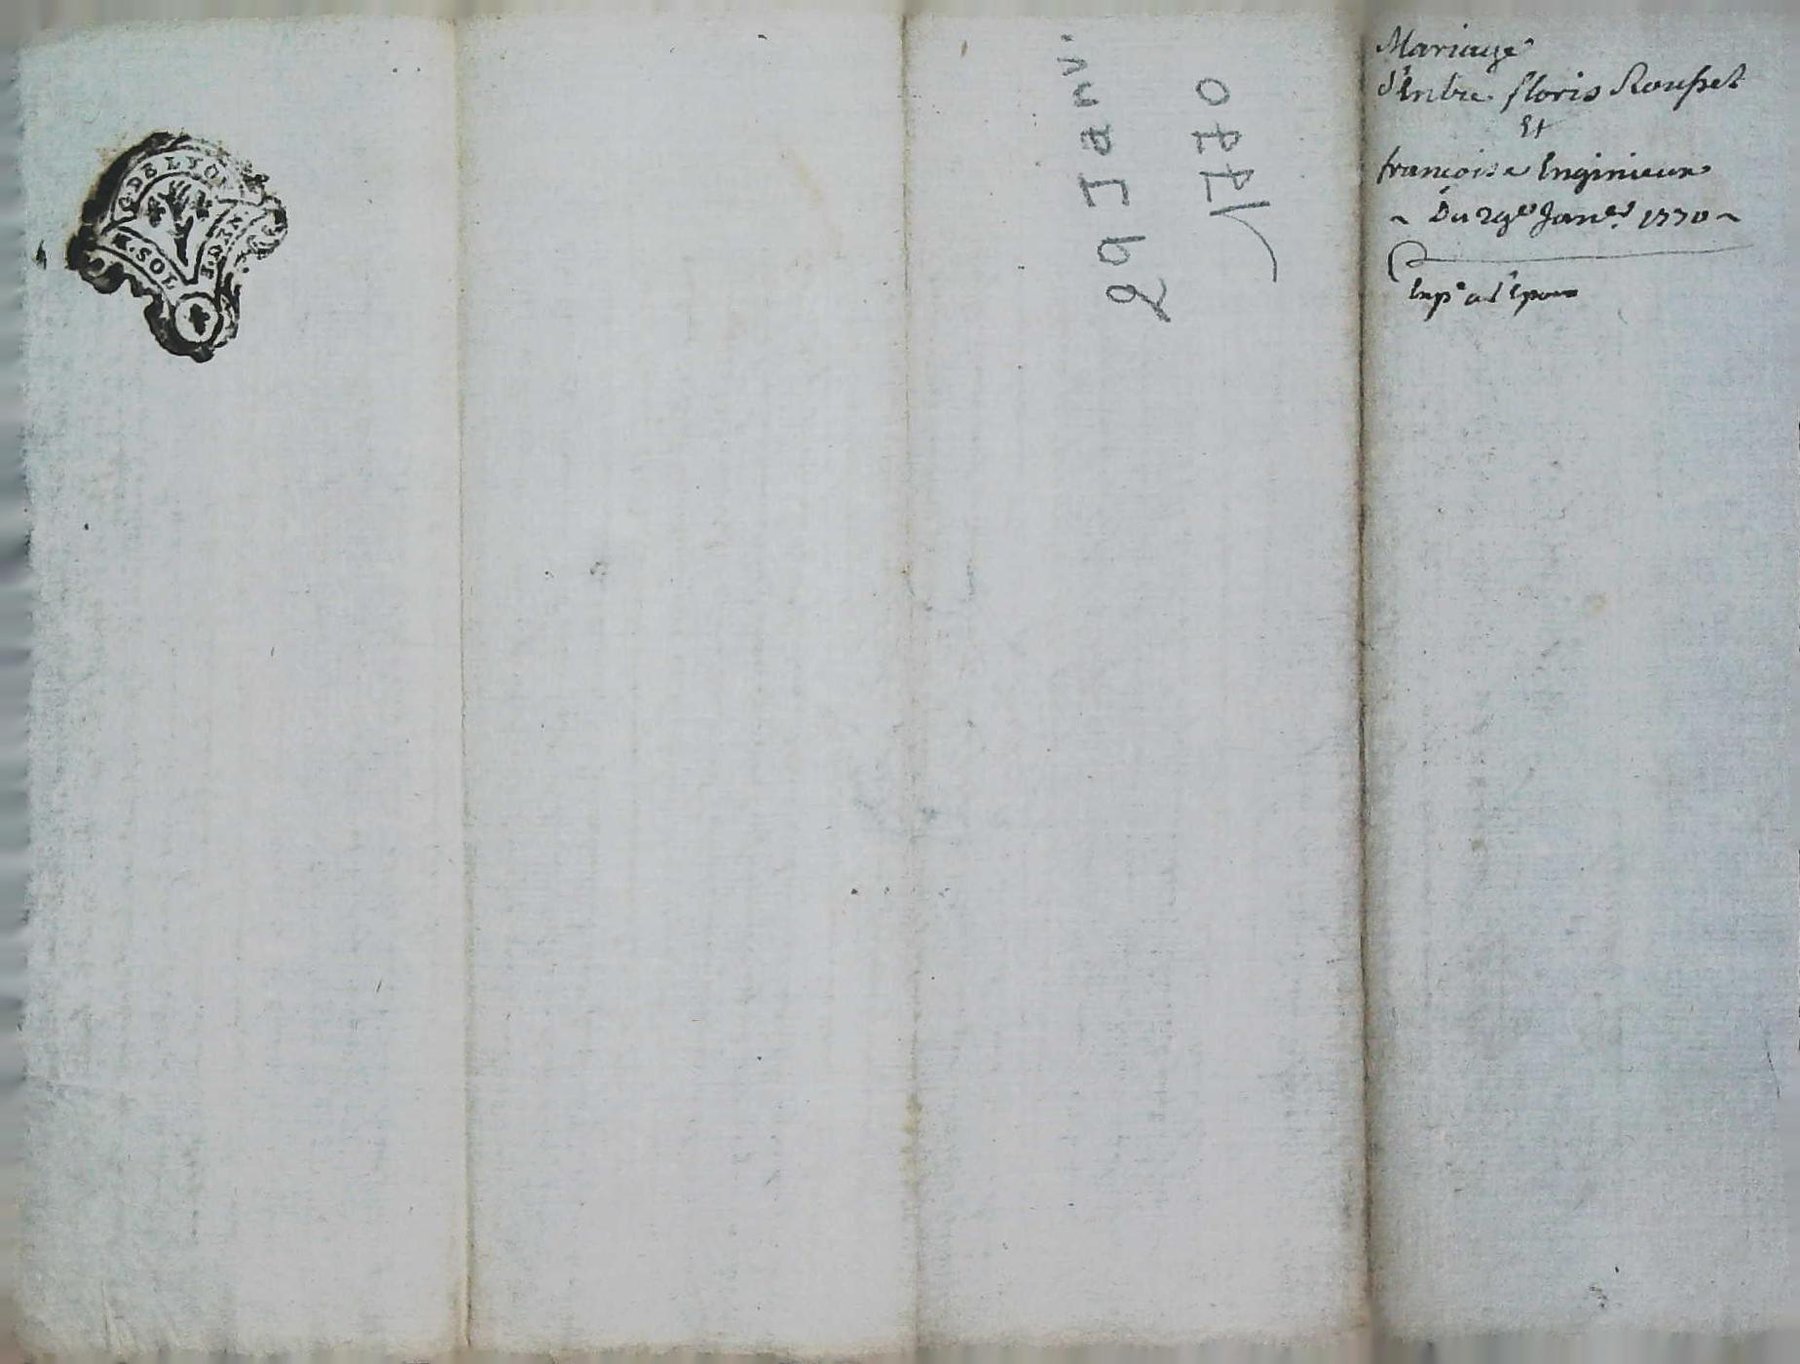 G. DE LYON
M. SOL
29 Janv.
1770
Mariage
d'Entre floris Rousset
Et
françoise Enginieux
~ Du 29e Janer. 1770 ~
Exp° a l'Epoux